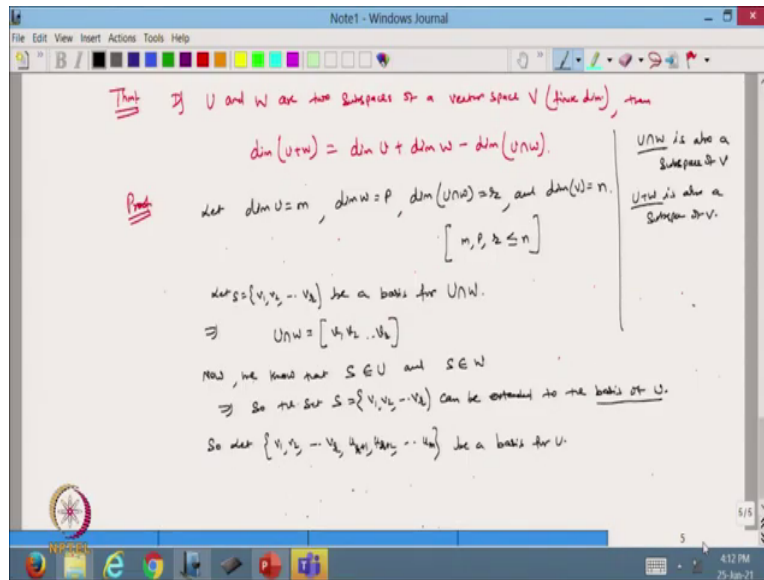 Note1 - Windows Journal
File Edit View Insert Actions Tools Help
B I
Thm: If U and W are two subspaces of a vector space V (finite dim), then
dim (U+W) = dim U + dim W - dim (U∩W).
U∩W is also a
Subspace of V
U+W is also a
Subspace of V.
Proof: Let dim U = m, dim W = P, dim (U∩W) = r, and dim(V) = n.
[m, P, r ≤ n]
Let S = {v1, v2, ... vr} be a basis for U∩W.
⇒ U∩W = [v1, v2 ... vr]
Now, we know that S ∈ U and S ∈ W
⇒ So the set S = {v1, v2, ... vr} can be extended to the basis of U.
So let {v1, v2, ... vr, ur+1, ur+2, ... um} be a basis for U.
NPTEL
5/5
5
4:12 PM
25-Jun-21